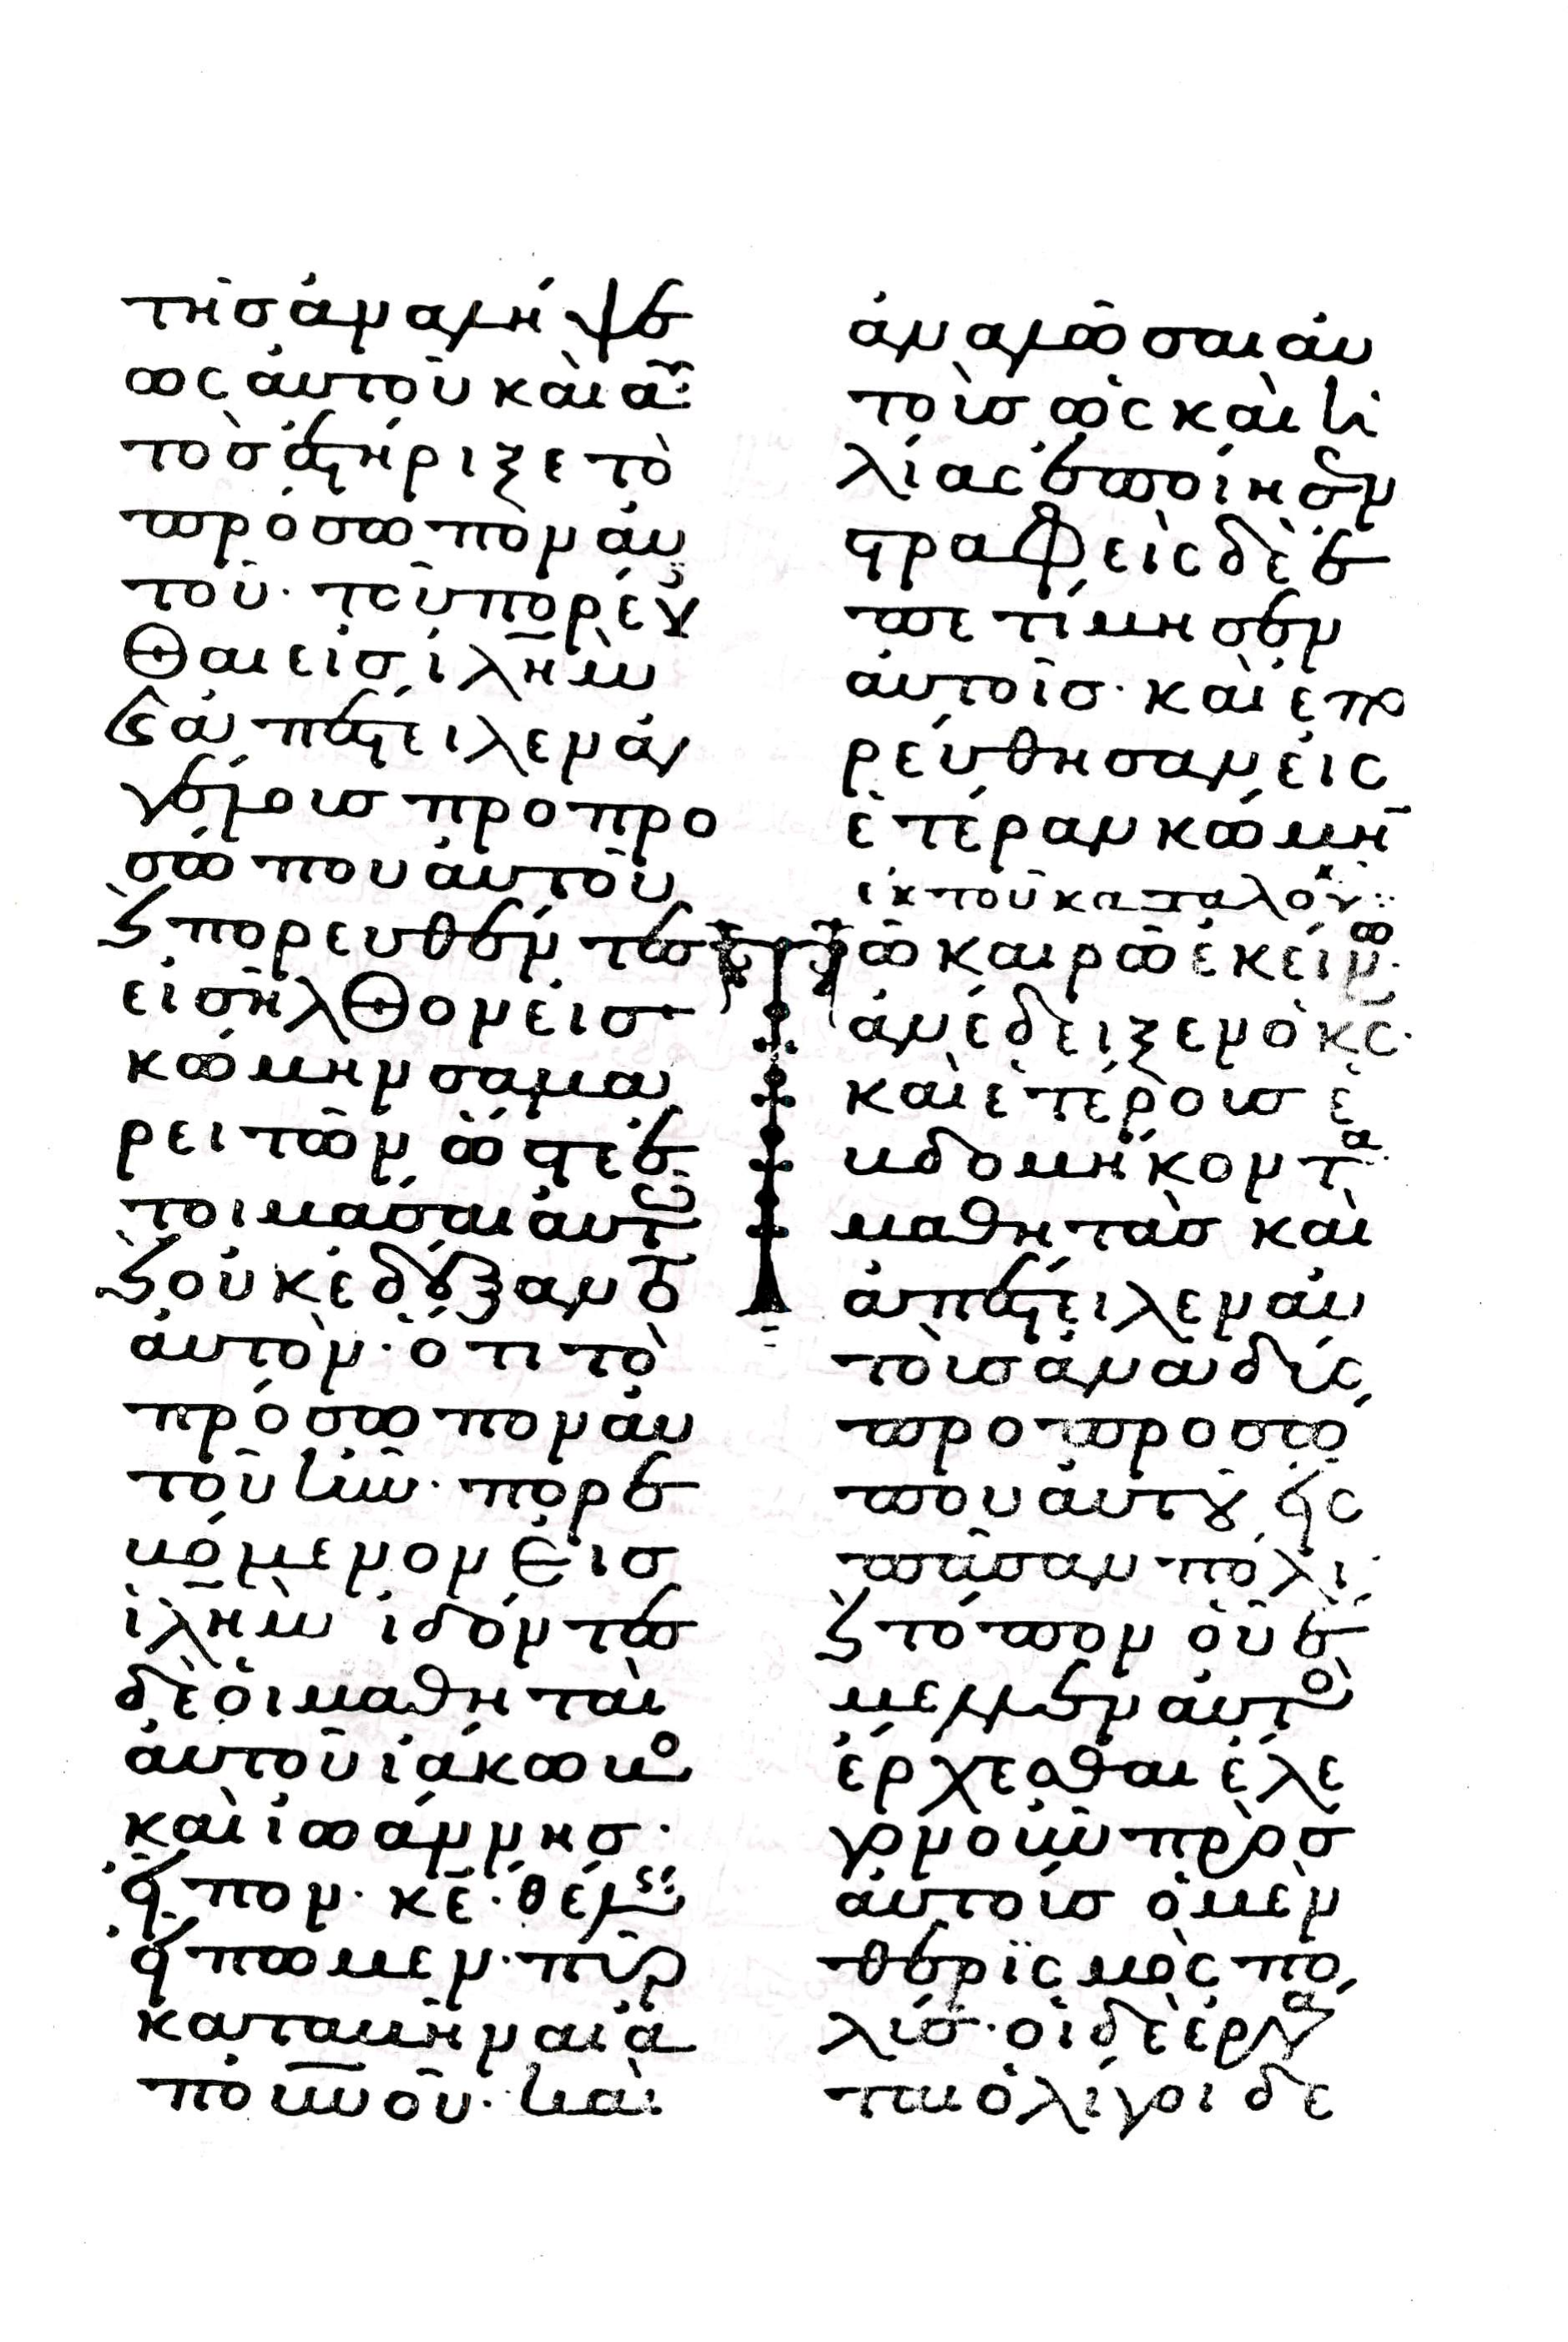 τῆσ ἀναλήψε
ωσ ἀυτοῦ καὶ ἀυ
τὸσ ἐστήριξε τὸ
πρόσωπὸν ἀυ
τοῦ· τοῦ πορέυ
θαι εἰσ ἰλημ
κ ἀπέστειλεν ἀγ
γέλοισ προ προ
σώπου ἀυτοῦ
κ πορευθέντεσ
εἰσῆλθον εἰσ
κώμην σαμα
ρειτῶν ὥστε ἑ
τοιμάσαι ἀυτῶ
κ οὐκ ἐδέξαντο
ἀυτὸν· ὅτι τὸ
πρόσωπον ἀυ
τοῦ ἦν· πορε
υόμενον εἰσ
ἰλημ ἰδόντεσ
δὲ ὁι μαθηταὶ
ἀυτοῦ ἰάκωβο
καὶ ἰωάννησ·
εἶπον· κε· θέλεισ
εἴπωμεν· πῦρ
καταβῆναι ἀ
πὸ ουνοῦ· καὶ
ἀναλῶσαι ἀυ
τοὺσ ὡσ καὶ ἡ
λίασ ἐποίησεν
στραφεὶσ δὲ ἐ
πετίμησεν
ἀυτοῖσ· καὶ ἐπο
ρέυθησαν εἰσ
ἑτέραν κώμην
ἐκ τοῦ κατα λουκ
τῶ καιρῶ ἐκείνω·
ἀνέδειξεν ὁ κσ·
καὶ ἑτέρουσ ἑ
βδομήκοντα·
μαθητὰσ καὶ
ἀπέστειλεν ἀυ
τοὺσ ἀνα δύο
προ προσώ
που ἀυτου εἰσ
πᾶσαν πόλιν
κ τόπον οὗ ἔ
μελλεν ἀυτὸσ
ἔρχεσθαι ἔλε
γεν οὖν πρὸσ
ἀυτούσ ὁ μὲν
θερϊσμὸσ πο
λύσ· οἱ δὲ ἐργα
ται ὀλίγοι δε